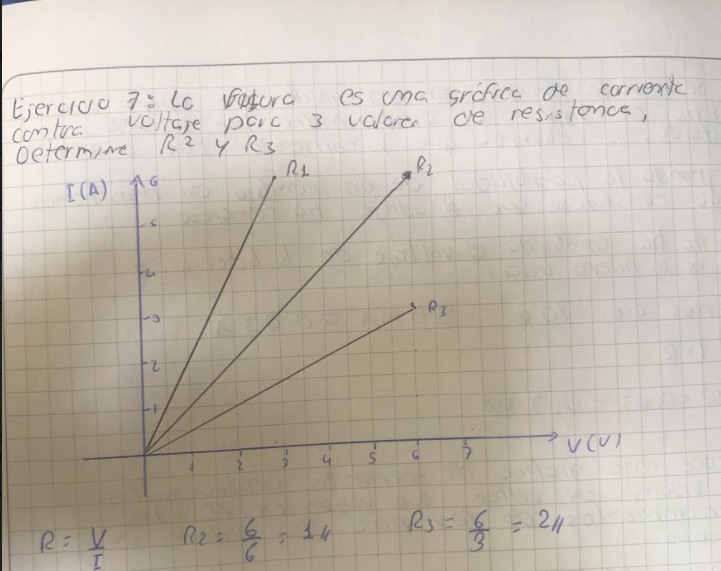 Ejercicio 7: La figura es una gráfica de corriente
contra voltaje para 3 valores de resistencia,
Determine R2 y R3
I(A)
6
R1
R2
5
4
3
R3
2
1
1 2 3 4 5 6 7
V(V)
R = V/I
R2 = 6/6 = 1
R3 = 6/3 = 2